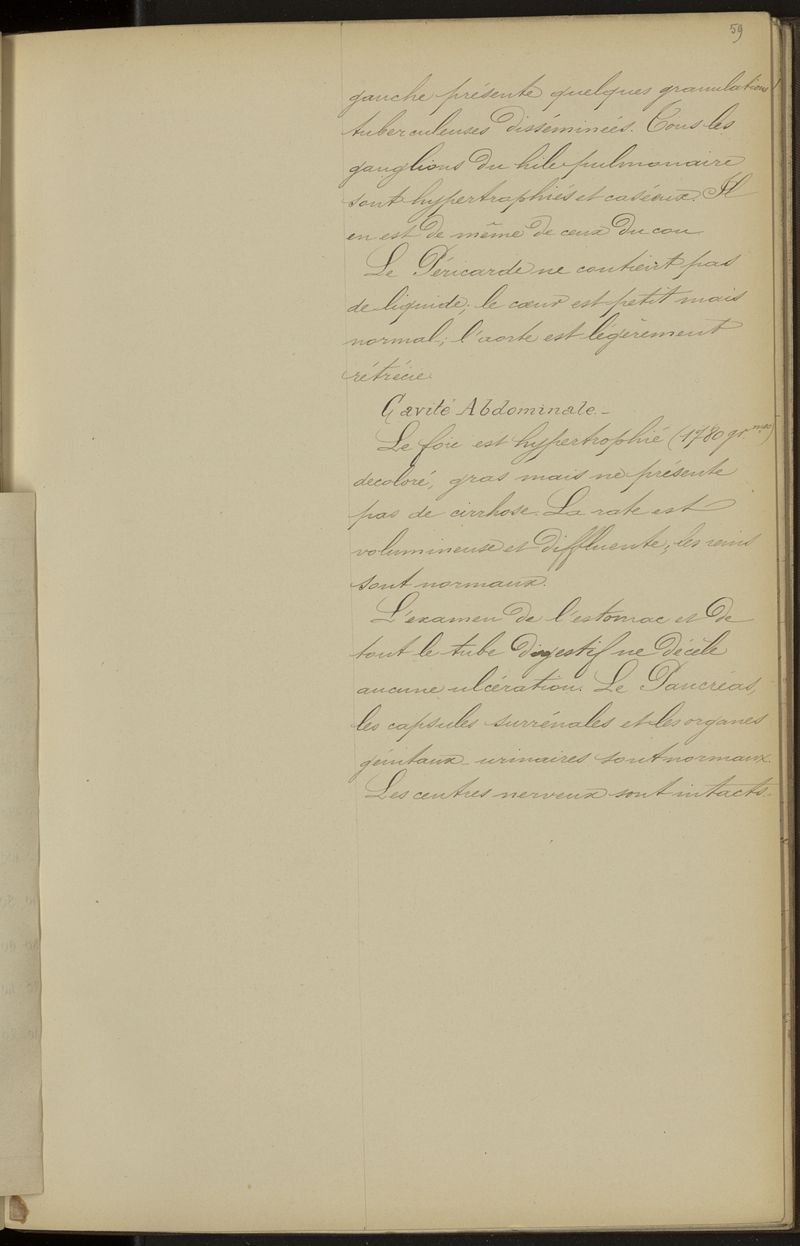 59
gauche présente quelques granulations
tuberculeuses disséminées. Tous les
ganglions du hile pulmonaire
sont hypertrophiés et caséeux. Il
en est de même de ceux du cou
Le Péricarde ne contient pas
de liquide; le cœur est petit mais
normal; l'aorte est légèrement
rétrécie.
Cavité Abdominale -
Le foie est hypertrophié (1780 gr.mes)
decoloré, gras mais ne présente
pas de cirrhose. La rate est
volumineuse et diffluente, les reins
sont normaux.
L'examen de l'estomac et de
tout le tube digestif ne décèle
aucune ulcération. Le Pancréas,
les capsules surrénales et les organes
génitaux-urinaires sont normaux.
Les centres nerveux sont intacts.